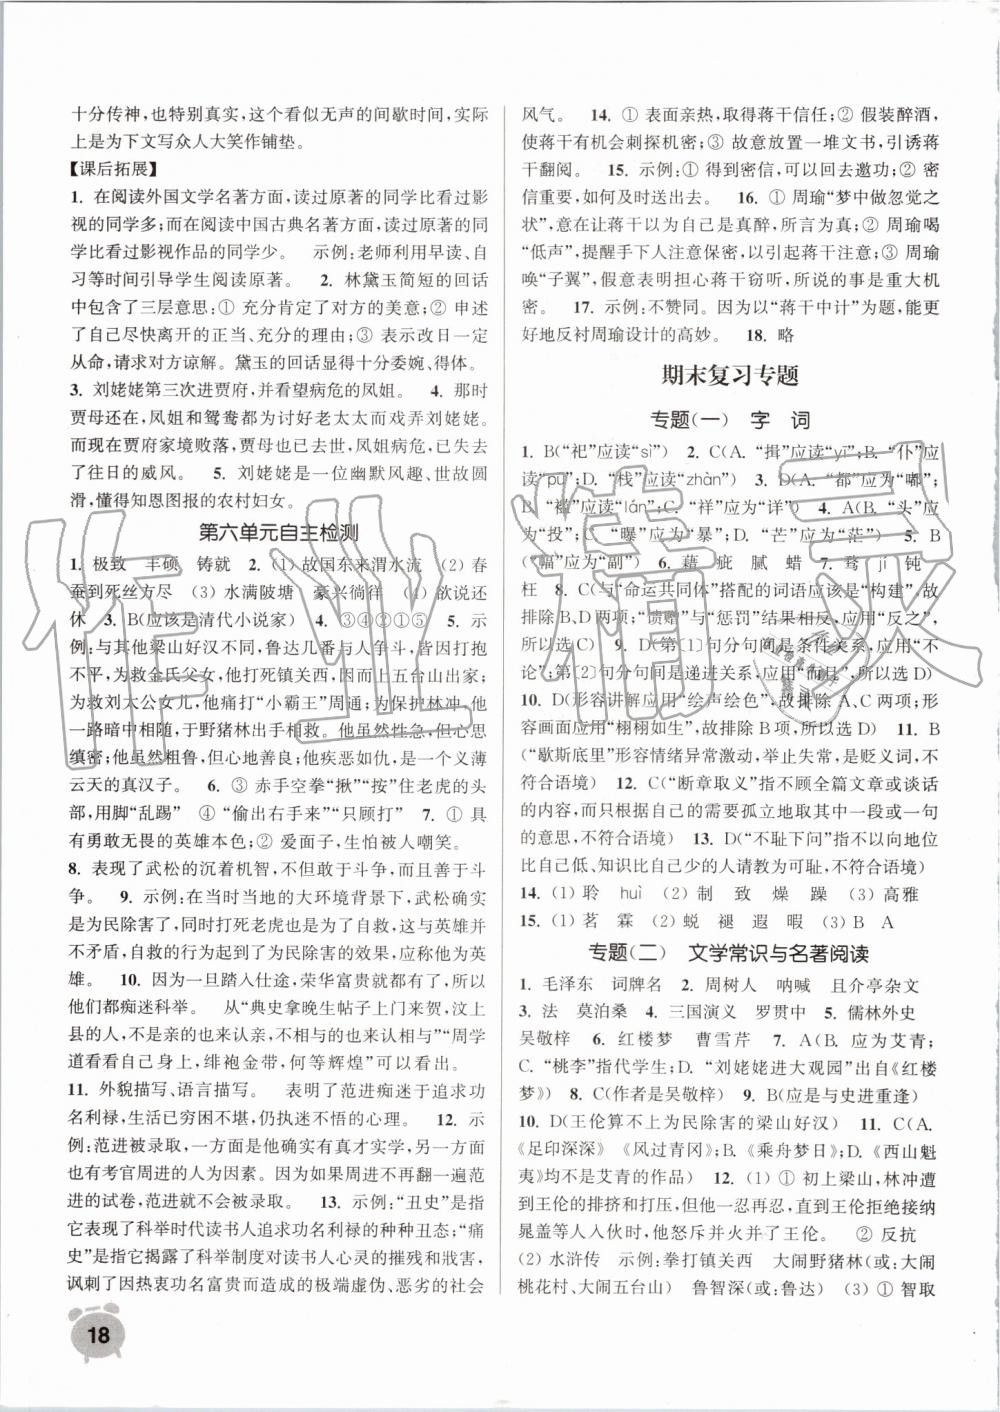 十分传神，也特别真实，这个看似无声的间歇时间，实际
上是为下文写众人大笑作铺垫。
【课后拓展】
1. 在阅读外国文学名著方面，读过原著的同学比看过影
视的同学多；而在阅读中国古典名著方面，读过原著的
同学比看过影视作品的同学少。　示例：老师利用早读、自
习等时间引导学生阅读原著。　2. 林黛玉简短的回话
中包含了三层意思：① 充分肯定了对方的美意；② 申述
了自己尽快离开的正当、充分的理由；③ 表示改日一定
从命，请求对方谅解。黛玉的回话显得十分委婉、得体。
3. 刘姥姥第三次进贾府，看望病危的凤姐。　4. 那时
贾母还在，凤姐和鸳鸯都为讨好老太太而戏弄刘姥姥。
而现在贾府家境败落，贾母也已去世，凤姐病危，已失去
了往日的威风。　5. 刘姥姥是一位幽默风趣、世故圆
滑，懂得知恩图报的农村妇女。
第六单元自主检测
1. 极致　丰硕　铸就　2. (1) 故国东来渭水流　(2) 春
蚕到死丝方尽　(3) 水满陂塘　豪兴徜徉　(4) 欲说还
休　3. B(应该是清代小说家)　4. ③④②①⑤　5. 示
例：与其他梁山好汉不同，鲁达几番与人争斗，皆因打抱
不平，为救金氏父女，他打死镇关西，因而上五台山出家；
为救刘太公女儿，他痛打“小霸王”周通；为保护林冲，他
一路暗中相随，于野猪林出手相救。他虽然性急，但心思
缜密；他虽然粗鲁，但心地善良；他疾恶如仇，是一个义薄
云天的真汉子。　6. ③ 赤手空拳“揪”“按”住老虎的头
部，用脚“乱踢”　④ “偷出右手来”“只顾打”　7. ① 具
有勇敢无畏的英雄本色；② 爱面子，生怕被人嘲笑。
8. 表现了武松的沉着机智，不但敢于斗争，而且善于斗
争。　9. 示例：在当时当地的大环境背景下，武松确实
是为民除害了，同时打死老虎也是自救，这与英雄并
不矛盾，自救的行为起到了为民除害的作用，应称他为英
雄。　10. 因为一旦踏入仕途，荣华富贵就都有了，所以
他们都痴迷科举。　从“典史拿晚生帖子上门来贺，汶上
县的人，不是亲的也来认亲，不相与的也来相与”“周学
道看看自己身上，绯袍金带，何等辉煌”可以看出。
11. 外貌描写、语言描写。　表明了范进痴迷于追求功
名利禄，生活已穷困不堪，仍执迷不悟的心理。　12. 示
例：范进被录取，一方面是他确实有真才实学，另一方面
也有考官周进的人为因素。因为如果周进不再翻一遍范
进的试卷，范进就不会被录取。　13. 示例：“丑史”是指
它表现了科举时代读书人追求功名利禄的种种丑态；“痛
史”是指它揭示了科举制度对读书人心灵的摧残和戕害，
讽刺了因热衷功名富贵而造成的极端虚伪、恶劣的社会
风气。　14. ① 表面亲热，取得蒋干信任；② 假装醉酒，
使蒋干有机会刺探机密；③ 故意放置一堆文书，引诱蒋
干翻阅。　15. 示例：① 得到密信，可以回去邀功；② 密
信重要，必须及时送出去。　16. ① 周瑜“梦中做忽觉之
状”，意在让蒋干以为自己是真醉，所言为真；② 周瑜喝
“低声”，是提醒手下人注意保密，以骗取蒋干注意；③ 周瑜
唤“子翼”，假意表明担心蒋干窃听，所说的事是重大机
密。　17. 示例：不赞同。因为以“蒋干中计”为题，能更
好地反衬周瑜设计的高妙。　18. 略
期末复习专题
专题(一)　字　词
1. B(“祀”应读“sì”)　2. C(A. “揖”应读“yī”；B. “仆”应
读“pū”；D. “栈”应读“zhàn”)　3. D(A. “都”应为“嘟”；
B. “褴”应读“lán”；C. “祥”应为“详”)　4. A(B. “头”应
为“投”；C. “曝”应为“暴”；D. “芒”应为“茫”)　5. B
(“幅”应为“副”)　6. 藉　疵　腻　蜡　7. 骛　jì　钝
枉　8. C(与“命运共同体”搭配的词语应该是“构建”，故
排除B、D两项；“馈赠”与“惩罚”结果相反，应用“反之”，
所以选C)　9. D(第[1]句分句间是条件关系，应用“不
论”；第[2]句分句间是递进关系，应用“而且”，所以选D)
10. D(形容讲解应用“绘声绘色”，故排除A、C两项；形容
景画面应用“栩栩如生”，故排除B项，所以选D)　11. B
(“歇斯底里”形容情绪异常激动，举止失常，是贬义词，不
符合语境)　12. C(“断章取义”指不顾全篇文章或谈话
的内容，而根据自己的需要孤立地取其中一段或一句
的意思，不符合语境)　13. D(“不耻下问”指不以向地位
比自己低、知识比自己少的人请教为可耻，不符合语境)
14. (1) 聆　huì　(2) 制　致　燥　躁　(3) 高雅
15. (1) 茗　霖　(2) 蜕　褪　遐　暇　(3) B　A
专题(二)　文学常识与名著阅读
1. 毛泽东　词牌名　2. 周树人　呐喊　且介亭杂文
3. 法　莫泊桑　4. 三国演义　罗贯中　5. 儒林外史
吴敬梓　6. 红楼梦　曹雪芹　7. A(B. 应为艾青；
C. “桃李”指代学生；D. “刘姥姥进大观园”出自《红楼
梦》)　8. C(作者是吴敬梓)　9. B(应是与史进重逢)
10. D(王伦算不上为民除害的梁山好汉)　11. C(A.
《足印深深》《风过青冈》；B. 《乘舟梦日》；D. 《西山魁
夷》均不是艾青的作品)　12. (1) ① 初上梁山，林冲遭
到王伦的排挤和打压，但他一忍再忍，直到王伦拒绝接纳
晁盖等人入伙时，他怒斥并火并了王伦。　② 反抗
(2) 水浒传　示例：拳打镇关西　大闹野猪林(或：大闹
桃花村、大闹五台山)　鲁智深(或：鲁达)　(3) ① 智取
18
作业精灵